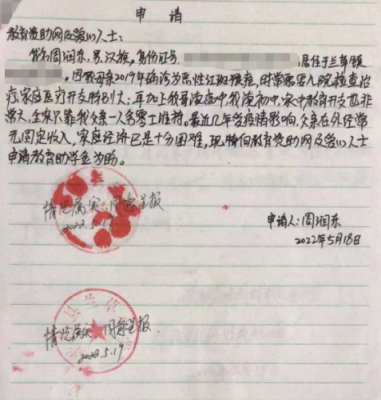 申 请
教育资助网及爱心人士：
我叫周润东，男，汉族，身份证号，居住于兰草镇
因我母亲2019年确诊为系性红斑狼疮，时常需要入院检查治
疗家庭医疗开支特别大；再加上我哥读高中，我读初中，家中教育开支也非
常大，全家只靠我父亲一人务零工维持。最近几年受疫情影响，父亲在外经常
无固定收入，家庭经济已是十分困难，现特向教育资助网及爱心人士
申请教育助学金为盼。
情况属实，同意呈报
2022.5.19
申请人：周润东
2022年5月18日
情况属实，同意呈报.
2022.5.19